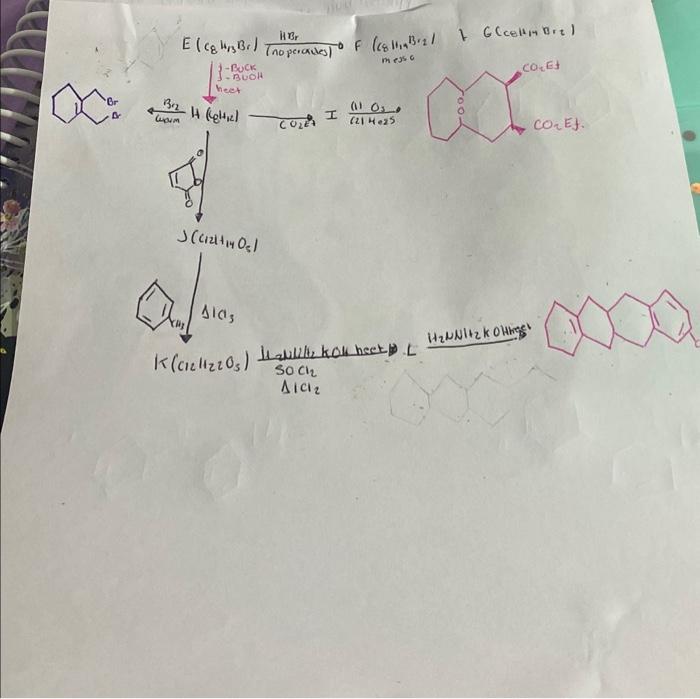 E (C8 H13 Br) HBr (no peroxides) F (C8 H14 Br2) & G (C8H14 Br2)
meso
t-BuOK
t-BuOH
heat
Br
Br
Br2
warm
H (C8H12)
CO2Et
I
(1) O3
(2) Me2S
O
O
CO2Et
CO2Et.
O
O
O
J (C12H14 O3)
CH3
AlCl3
K (C12H22O3) H2NNH2 KOH heat L H2NNH2 KOH heat
SOCl2
AlCl2